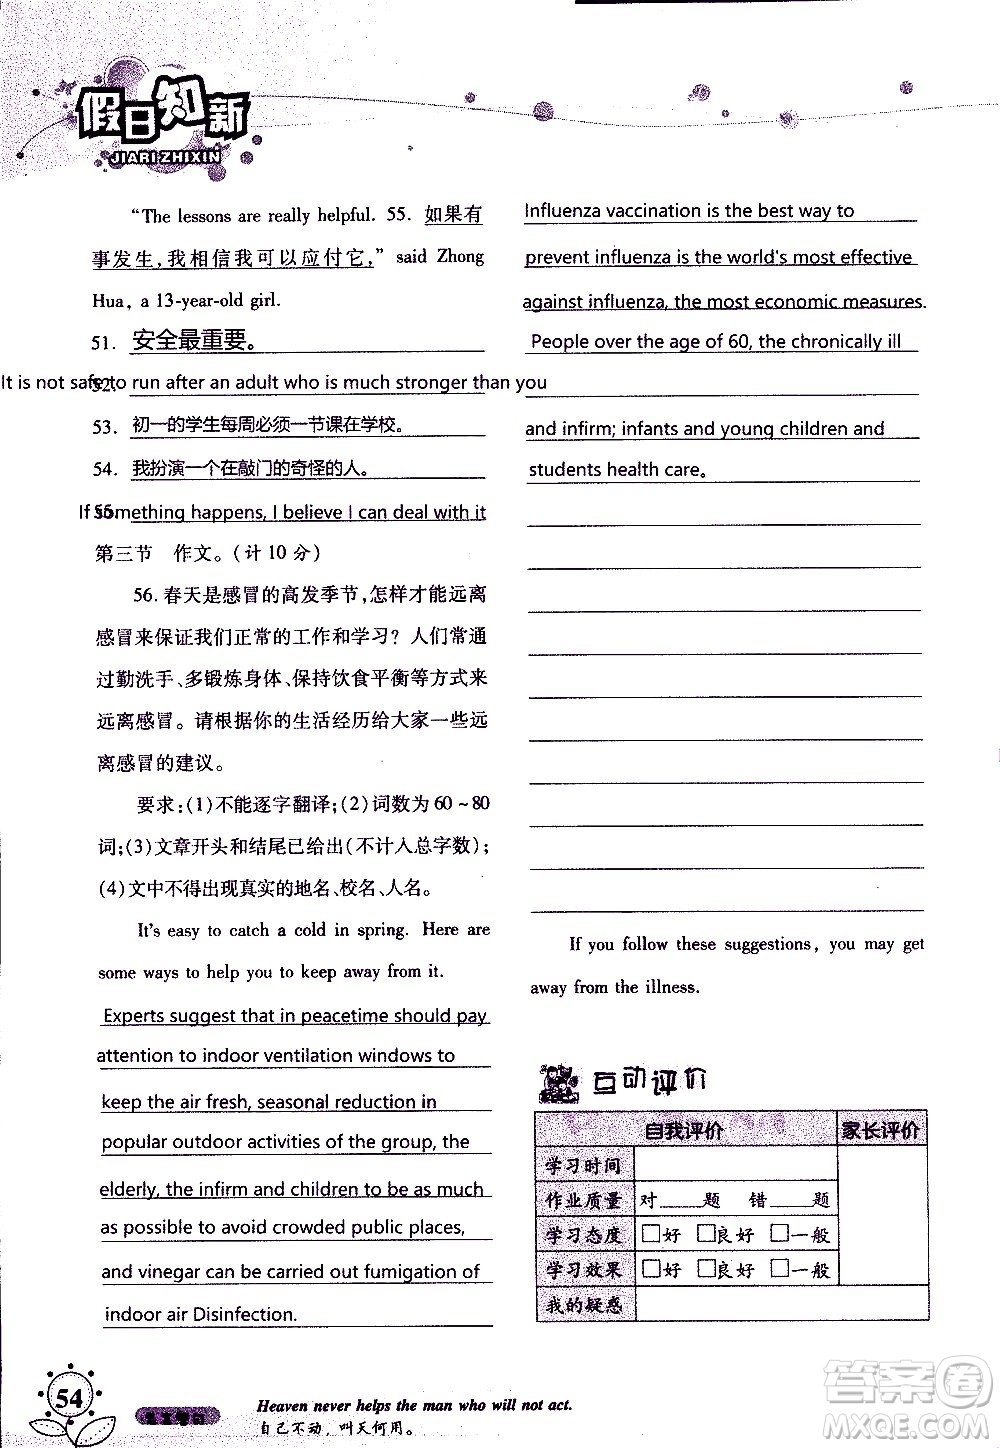 假日知新
JIARI ZHIXIN
"The lessons are really helpful. 55. 如果有
事发生，我相信我可以应付它，" said Zhong
Hua, a 13-year-old girl.
51. 安全最重要。
52. It is not safe to run after an adult who is much stronger than you
53. 初一的学生每周必须一节课在学校。
54. 我扮演一个在敲门的奇怪的人。
55. If something happens, I believe I can deal with it
第三节 作文。(计10分)
56. 春天是感冒的高发季节，怎样才能远离
感冒来保证我们正常的工作和学习？人们常通
过勤洗手、多锻炼身体、保持饮食平衡等方式来
远离感冒。请根据你的生活经历给大家一些远
离感冒的建议。
要求：(1)不能逐字翻译；(2)词数为60～80
词；(3)文章开头和结尾已给出(不计入总字数)；
(4)文中不得出现真实的地名、校名、人名。
It's easy to catch a cold in spring. Here are
some ways to help you to keep away from it.
Experts suggest that in peacetime should pay
attention to indoor ventilation windows to
keep the air fresh, seasonal reduction in
popular outdoor activities of the group, the
elderly, the infirm and children to be as much
as possible to avoid crowded public places,
and vinegar can be carried out fumigation of
indoor air Disinfection.
Influenza vaccination is the best way to
prevent influenza is the world's most effective
against influenza, the most economic measures.
People over the age of 60, the chronically ill
and infirm; infants and young children and
students health care。
If you follow these suggestions, you may get
away from the illness.
互动评价
自我评价 家长评价
学习时间
作业质量 对____题 错____题
学习态度 □好 □良好 □一般
学习效果 □好 □良好 □一般
我的疑惑
54
Heaven never helps the man who will not act.
自己不动，叫天何用。
答案圈
MXQE.COM